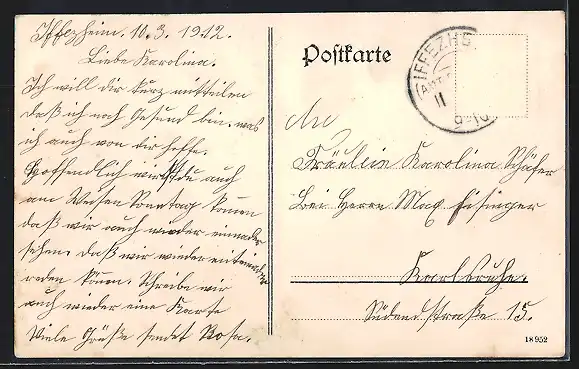 Iffezheim. 10.3.1912.
Liebe Karolina.
Ich will dir kurz mitteilen
daß ich noch Gesund bin. was
ich auch von dir hoffe.
Hoffendlich wirst du auch
am Weisen Sonntag kommen
daß wir auch wieder einander
sehen. daß wir wieder
reden könn. Schreibe mir
auch wieder eine Karte
Viele Grüße sendet Rosa.
Postkarte
IFFEZHE
11
9-10
An
Fräulein Karolina Schäfer
Bei Herrn Max Eisinger
Karlsruhe.
Südendstraße 15.
18952